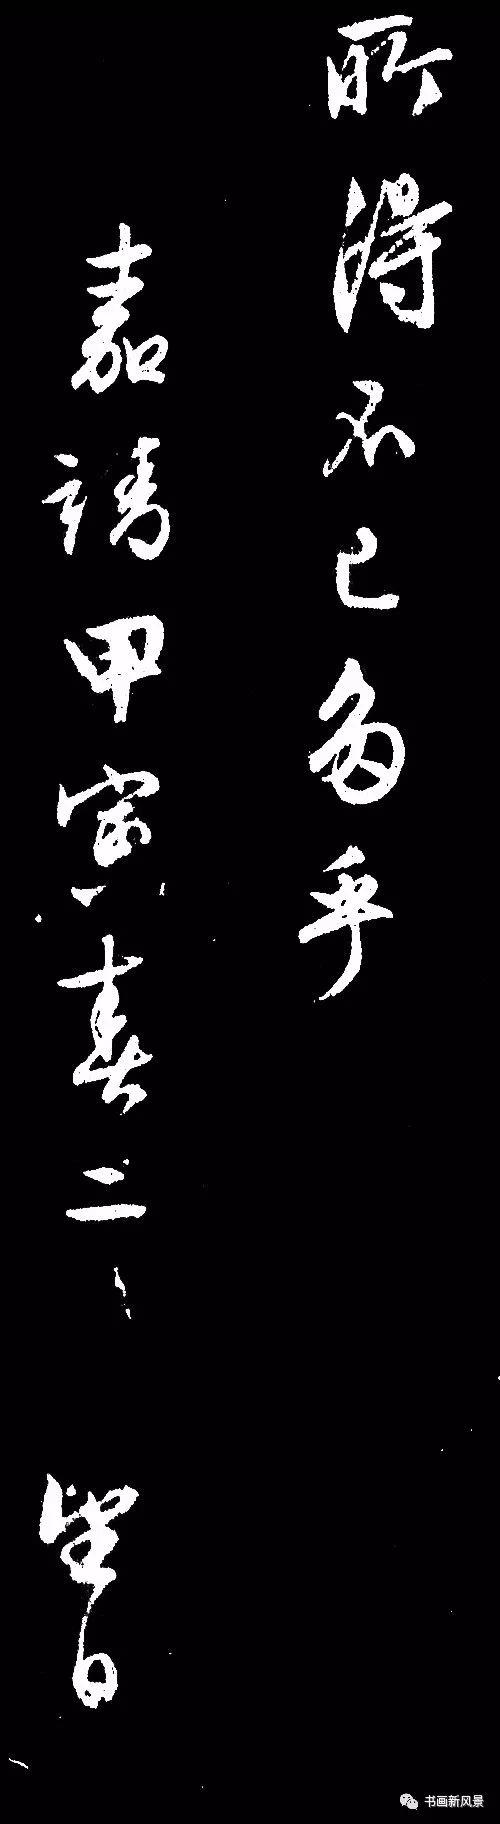 所得不已多乎
嘉靖甲寅春二
望日
书画新风景